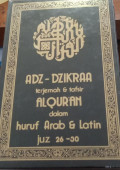 ADZ-DZIKRAA
terjemah & tafsir
ALQURAN
dalam
huruf Arab & Latin
juz 26-30